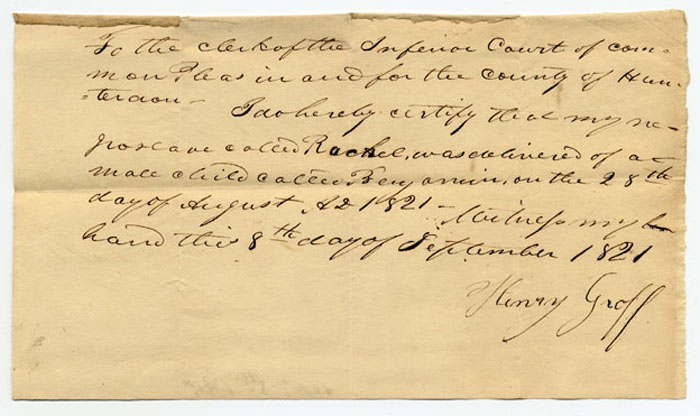 To the clerk of the Inferior Court of com-
mon Pleas in and for the county of Hun-
=terdon - I do hereby certify that my ne-
gro slave called Rachel, was delivered of a
male child called Benjamin, on the 28th
day of August AD 1821 - Witness my
hand this 8th day of September 1821
Henry Groff